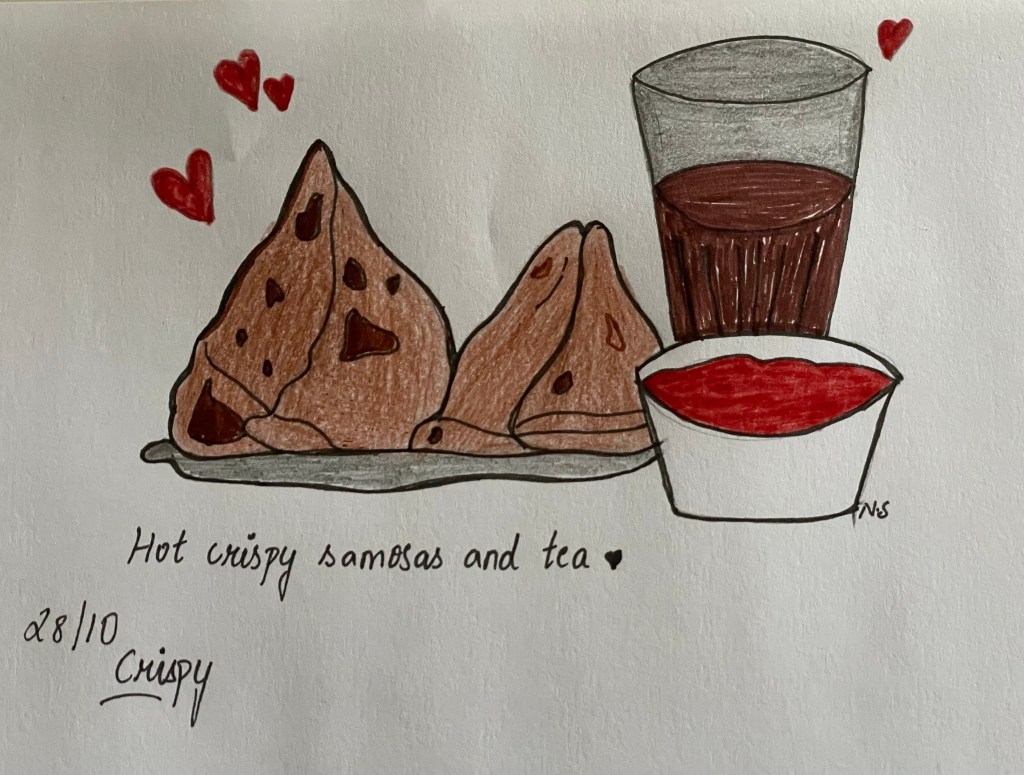 N.S
Hot crispy samosas and tea ♥
28/10
Crispy